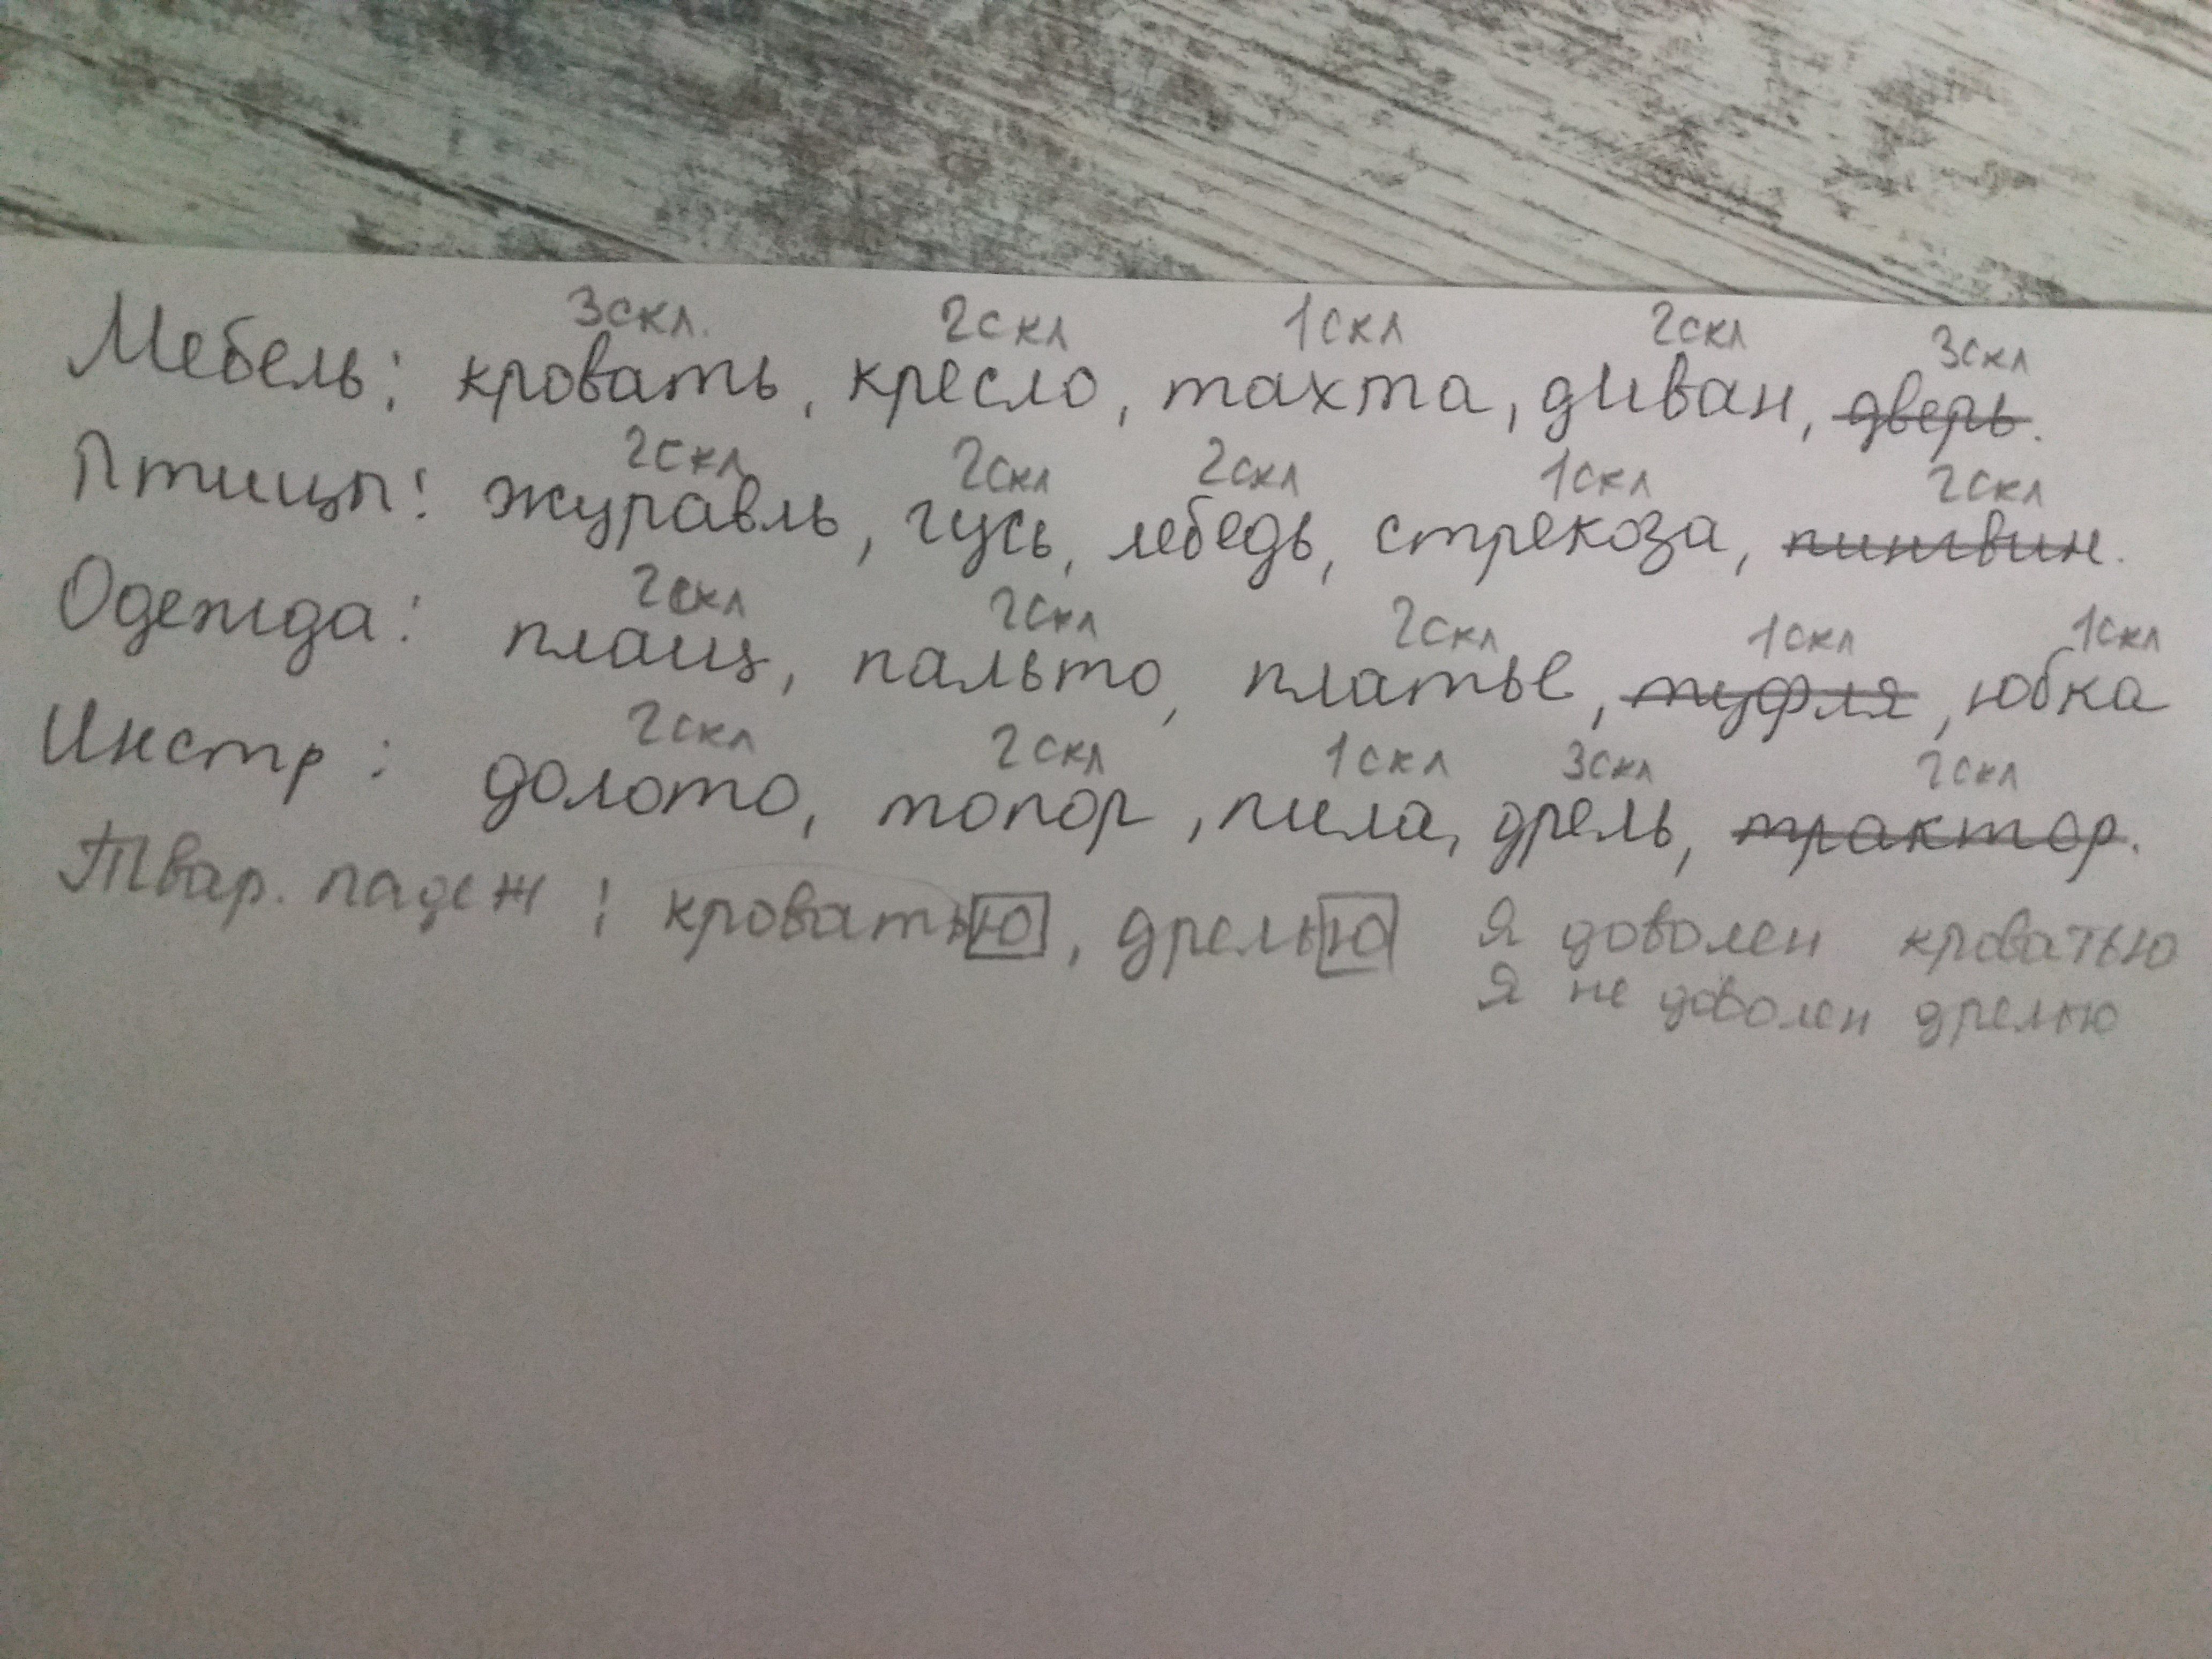 3скл. 2скл 1скл 2скл 3скл
Мебель: кровать, кресло, тахта, диван, дверь.
2скл 2скл 2скл 1скл 2скл
Птицы: журавль, гусь, лебедь, стрекоза, пингвин.
2скл 2скл 2скл 1скл 1скл
Одежда: плащ, пальто, платье, туфля, юбка
2скл 2скл 1скл 3скл 2скл
Инстр: долото, топор, пила, дрель, трактор.
Твар. падеж: кроватью, дрелью Я доволен кроватью
Я не доволен дрелью